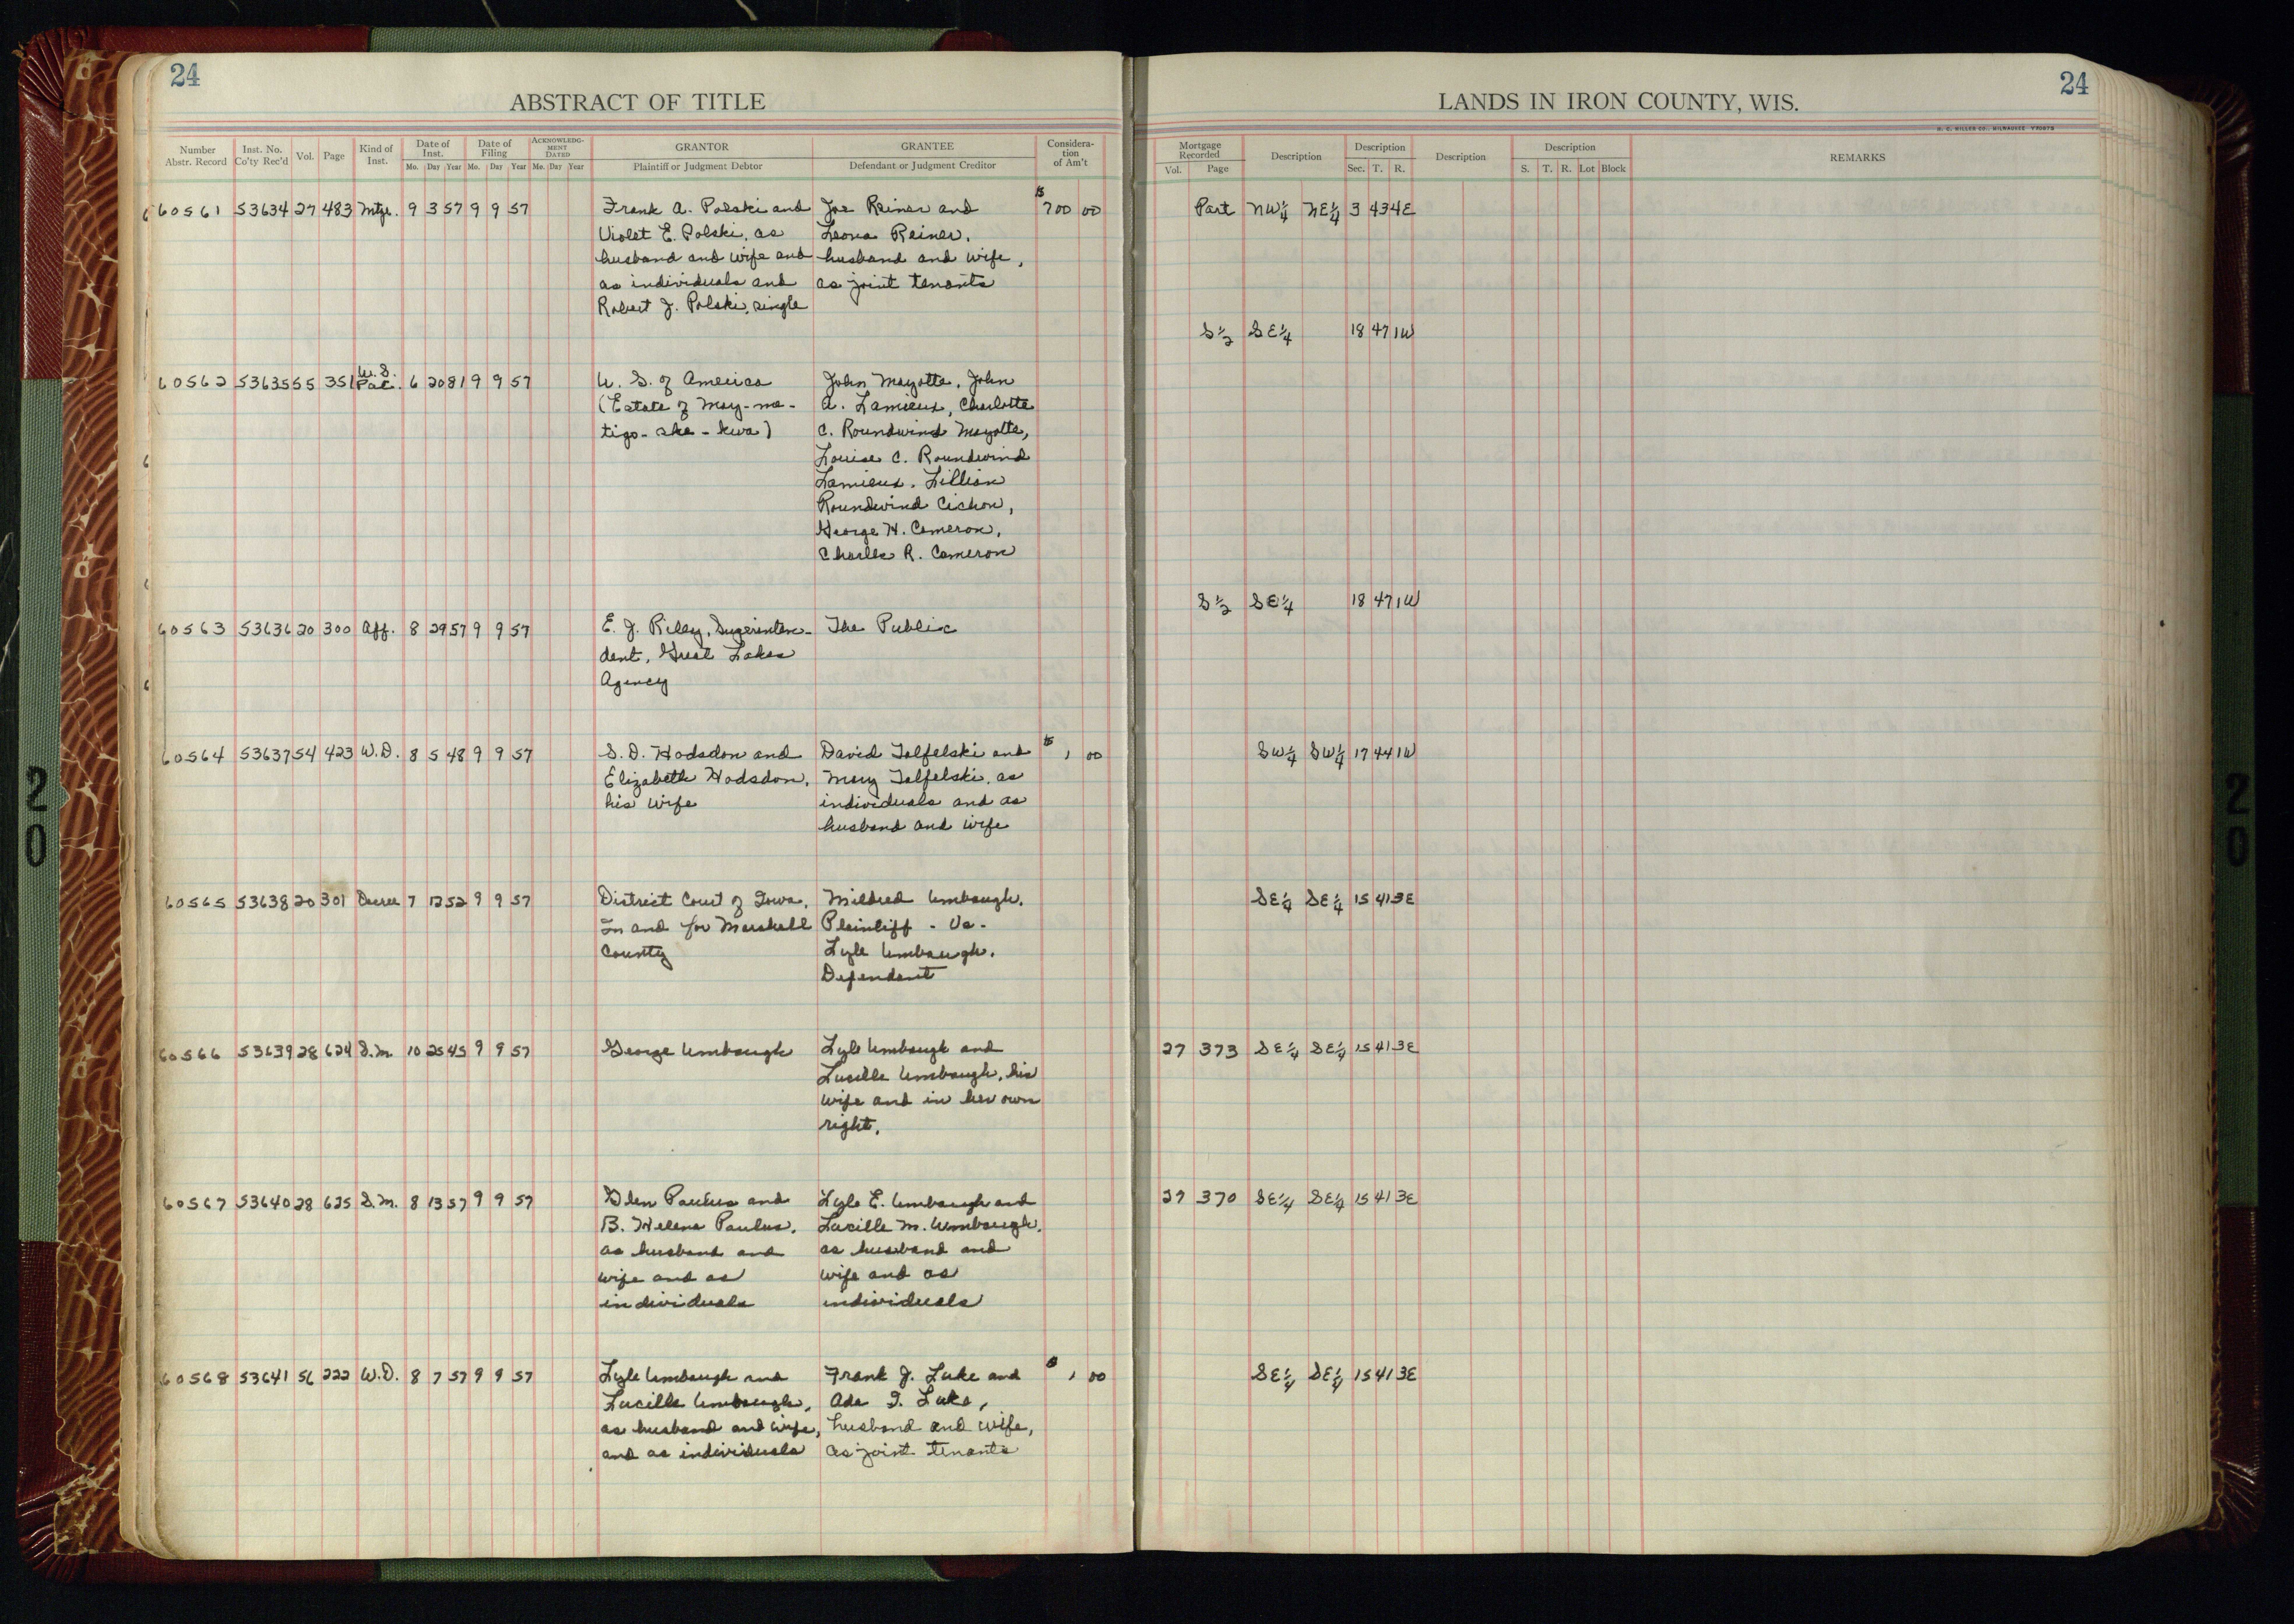 24
ABSTRACT OF TITLE
Number Abstr. Record Inst. No. Co'ty Rec'd Vol. Page Kind of Inst. Date of Inst. Mo. Day Year Date of Filing Mo. Day Year ACKNOWLEDGMENT DATED Mo. Day Year GRANTOR Plaintiff or Judgment Debtor GRANTEE Defendant or Judgment Creditor Consideration of Am't
60561 53634 27 483 Mtge. 9 3 57 9 9 57 Frank A. Polski and Joe Reiner and $700 00
Violet E. Polski, as Leona Reiner,
husband and wife and husband and wife,
as individuals and as joint tenants
Robert J. Polski, single
60562 53635 55 351 U.S. Pat. 6 20 81 9 9 57 U. S. of America John Mayotte, John
(Estate of May-me- A. Lamieux, Charlotte
tigo-ske-kwa) C. Roundwind Mayotte,
Louise C. Roundwind
Lamieux, Lillian
Roundwind Cichon,
George H. Cameron,
Charles R. Cameron
60563 53636 20 300 Aff. 8 29 57 9 9 57 E. J. Riley, Superinten- The Public
dent, Great Lakes
Agency
60564 53637 54 423 W.D. 8 5 48 9 9 57 S. D. Hodsdon and David Tolfelski and $1 00
Elizabeth Hodsdon, Mary Tolfelski, as
his wife individuals and as
husband and wife
60565 53638 20 301 Decree 7 12 52 9 9 57 District Court of Iowa, Mildred Umbaugh,
In and for Marshall Plaintiff - Vs -
County Lyle Umbaugh,
Defendant
60566 53639 28 624 S.M. 10 25 45 9 9 57 George Umbaugh Lyle Umbaugh and
Lucille Umbaugh, his
wife and in her own
right.
60567 53640 28 625 S.M. 8 13 57 9 9 57 Glen Paulus and Lyle E. Umbaugh and
B. Helene Paulus, Lucille M. Umbaugh,
as husband and as husband and
wife and as wife and as
individuals individuals
60568 53641 56 222 W.D. 8 7 57 9 9 57 Lyle Umbaugh and Frank J. Luke and $1 00
Lucille Umbaugh, Ada I. Luke,
as husband and wife, husband and wife,
and as individuals as joint tenants
24
LANDS IN IRON COUNTY, WIS.
H. C. MILLER CO., MILWAUKEE
Mortgage Recorded Vol. Page Description Description Sec. T. R. Description Description S. T. R. Lot Block REMARKS
Part NW¼ NE¼ 3 43 4E
S½ SE¼ 18 47 1W
S½ SE¼ 18 47 1W
SW¼ SW¼ 17 44 1W
SE¼ SE¼ 15 41 3E
27 373 SE¼ SE¼ 15 41 3E
27 370 SE¼ SE¼ 15 41 3E
SE¼ SE¼ 15 41 3E
20
20